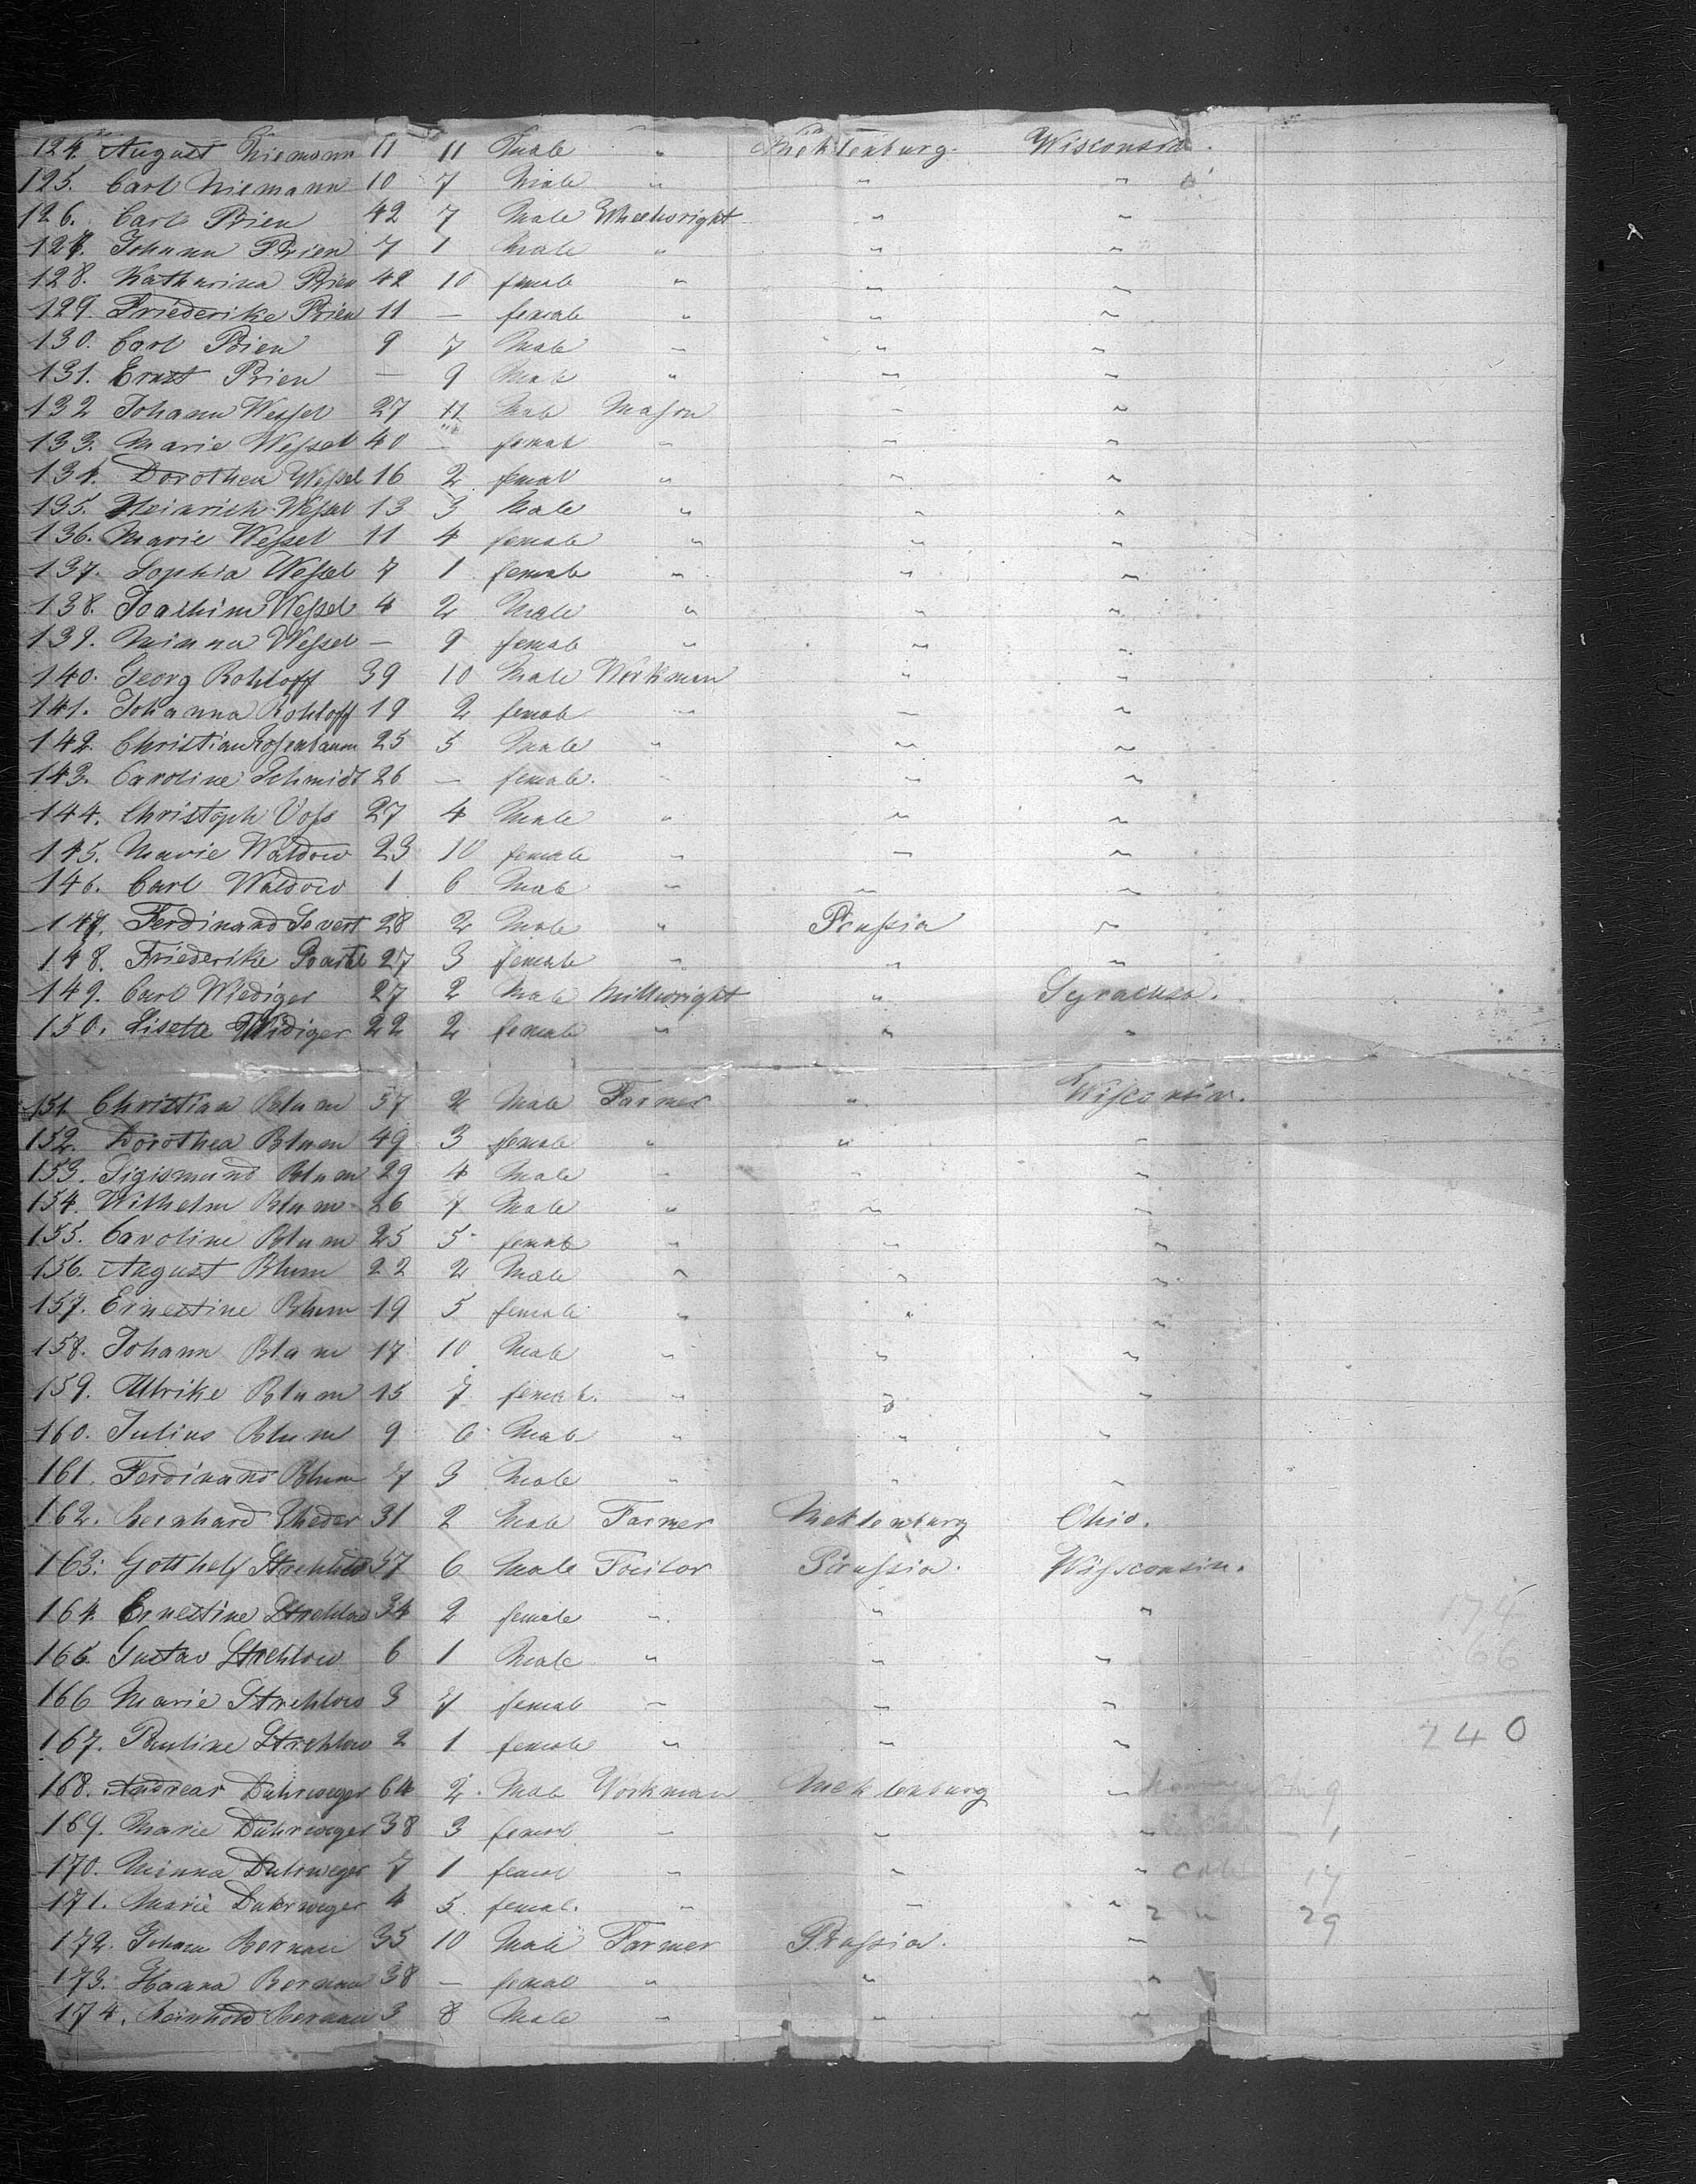 124. August Niemann 11 11 Male " Meklenburg. Wisconsin.
125. Carl Niemann 10 7 Male " " "
126. Carl Prien 42 7 Male Wheelwright " "
127. Johann Prien 7 1 Male " " "
128. Katharina Prien 42 10 female " " "
129. Friederike Prien 11 — female " " "
130. Carl Prien 9 7 Male " " "
131. Ernst Prien — 9 Male " " "
132 Johann Weßel 27 11 Male Mason " "
133. Marie Weßel 40 — female " " "
134. Dorothea Weßel 16 2 femal " " "
135. Heinrich Weßel 13 3 Male " " "
136. Marie Weßel 11 4 female " " "
137. Sophia Weßel 7 1 female " " "
138. Joachim Weßel 4 2 Male " " "
139. Minna Weßel — 9 female " " "
140. Georg Rohloff 39 10 Male Workman " "
141. Johanna Rohloff 19 2 female " " "
142. Christian Roßenbaum 25 5 Male " " "
143. Caroline Schmidt 26 — female. " " "
144. Christoph Voßs 27 4 Male " " "
145. Marie Waldow 23 10 female " " "
146. Carl Waldow 1 6 Male " " "
147. Ferdinand 28 2 Male " Prußia "
148. Friederike 27 3 female " " "
149. Carl Wiediger 27 2 Male Millwright " Syracuse.
150. Lisette Widiger 22 2 female " " "
151 Christian Blum 57 2 Male Farmer " Wißconsin.
152. Dorothea Blum 49 3 female " " "
153. Sigismund Blum 29 4 Male " " "
154. Wilhelm Blum 26 7 Male " " "
155. Caroline Blum 25 5 female " " "
156. August Blum 22 2 Male " " "
157. Ernestine Blum 19 5 female " " "
158. Johann Blum 17 10 Male " " "
159. Ulrike Blum 15 7 female. " " "
160. Julius Blum 9 6 Male " " "
161. Ferdinand Blum 7 3 Male " " "
162. Bernhard 31 2 Male Farmer Meklenburg Ohio.
163. Gotthelf Strehlow 37 6 Male Toeilor Prußia. Wißsconsin.
164. Ernestine Strehlow 34 2 female " " "
165. Gustav Strehlow 6 1 Male " " "
166 Marie Strehlow 3 7 female " " "
167. Pauline Strehlow 2 1 female " " "
168. Andreas Duhrweger 64 2 Male Workman Meklenburg "
169. Marie Duhrweger 38 3 femal " " "
170. Minna Duhrweger 7 1 femal " " "
171. Marie Duhrweger 4 5 female. " " "
172. Johann Bernau 35 10 Male Farmer Prußia. "
173. Hanna Bernau 38 — femal " " "
174. Reinhold Bernau 3 8 Male " " "
174
66
240
9
1
17
29